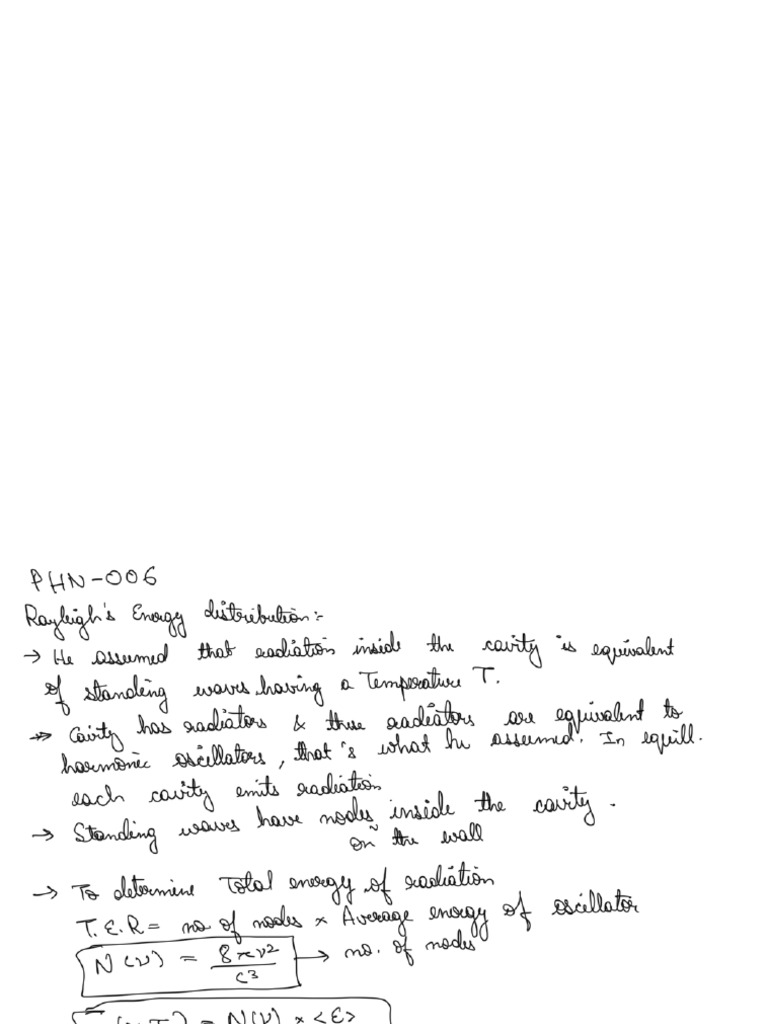 PHN-006
Rayleigh's Energy distribution:-
→ He assumed that radiation inside the cavity is equivalent
of standing waves having a Temperature T.
→ Cavity has radiators & these radiators are equivalent to
harmonic oscillators, that's what he assumed. In equill.
each cavity emits radiation
→ Standing waves have nodes inside the cavity.
on the wall
→ To determine Total energy of radiation
T.E.R = no of nodes × Average energy of oscillator
N(ν) = 8πν²/c³ → no. of nodes
= N(ν) × <ε>